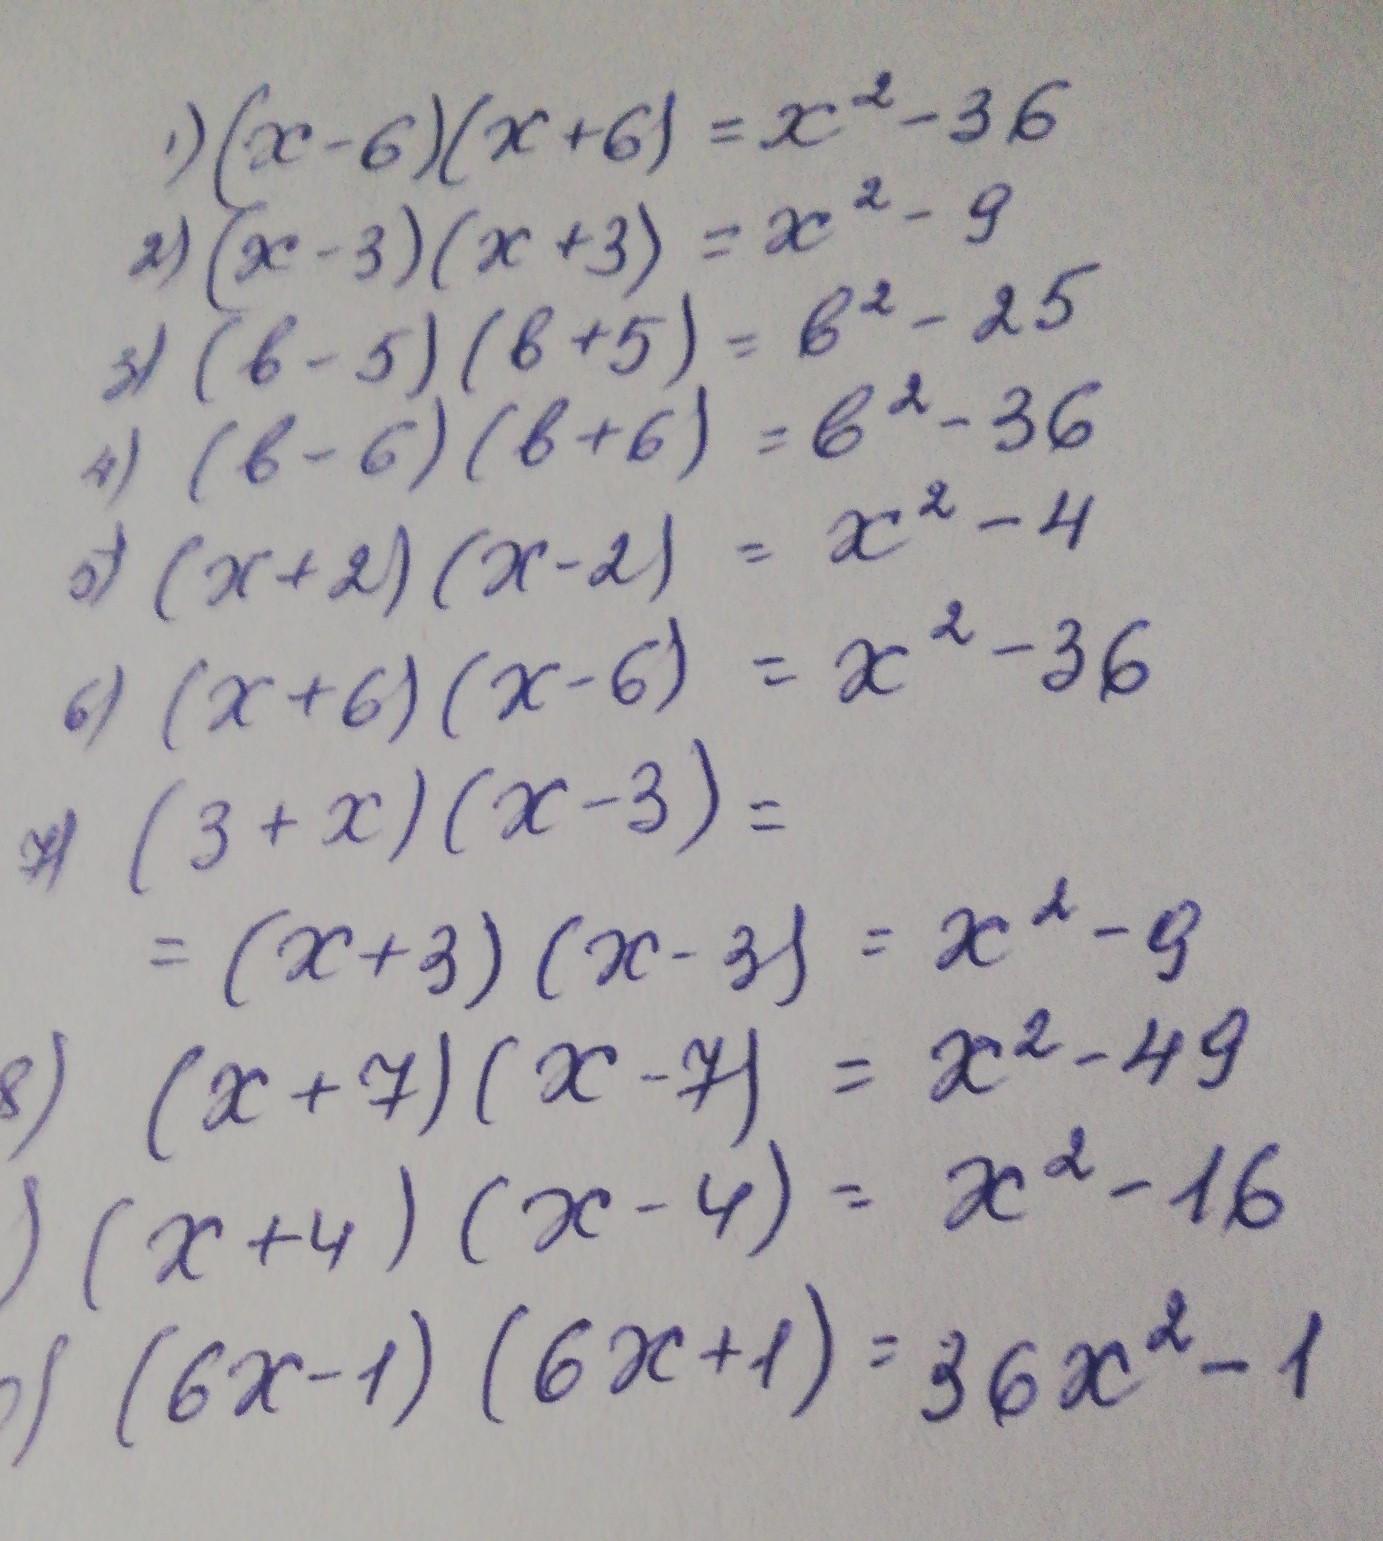 1) (x-6)(x+6) = x² - 36
2) (x-3)(x+3) = x² - 9
3) (в-5)(в+5) = в² - 25
4) (в-6)(в+6) = в² - 36
5) (x+2)(x-2) = x² - 4
6) (x+6)(x-6) = x² - 36
7) (3+x)(x-3) =
= (x+3)(x-3) = x² - 9
8) (x+7)(x-7) = x² - 49
) (x+4)(x-4) = x² - 16
) (6x-1)(6x+1) = 36x² - 1